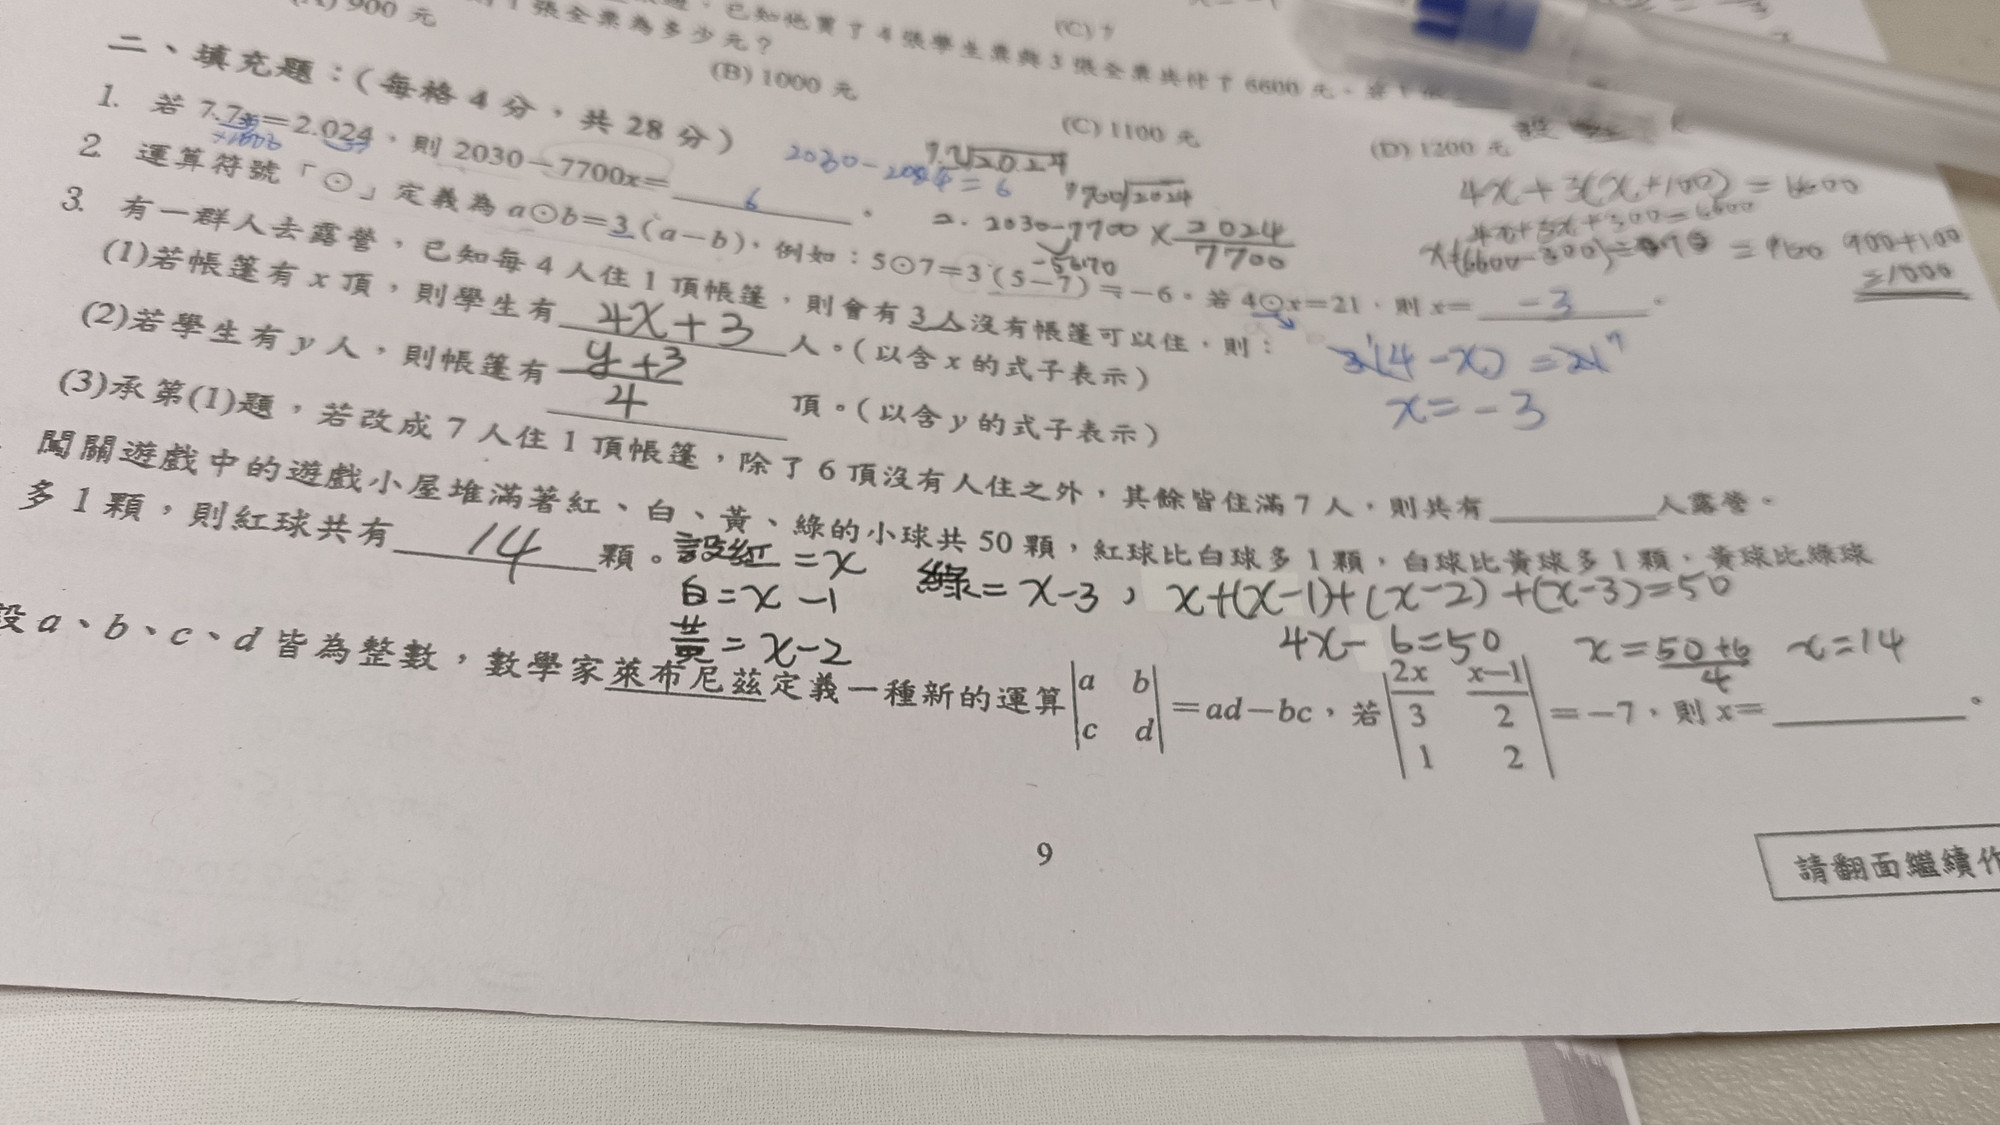 900 元
1 張全票為多少元？
已知他買了 4 張學生票與 3 張全票共付了 6600 元
(B) 1000 元
(C) 1100 元
(D) 1200 元
二、填充題：（每格 4 分，共 28 分）
1. 若 7.7x=2.024，則 2030－7700x= 6 。
2030-2024=6
7.7√2024
7700√2024
2. 2030-7700 × 2024/7700
-5670
4x+3(x+100)=6600
4x+3x+300=6600
=900 900+100
=1000
2. 運算符號「⊙」定義為 a⊙b=3(a－b)，例如：5⊙7=3(5－7)=－6。若 4⊙x=21，則 x= -3 。
3(4-x)=21
x=-3
3. 有一群人去露營，已知每 4 人住 1 頂帳篷，則會有 3 人沒有帳篷可以住，則：
(1)若帳篷有 x 頂，則學生有 4x+3 人。（以含 x 的式子表示）
(2)若學生有 y 人，則帳篷有 y+3/4 頂。（以含 y 的式子表示）
(3)承第(1)題，若改成 7 人住 1 頂帳篷，除了 6 頂沒有人住之外，其餘皆住滿 7 人，則共有 人露營。
闖關遊戲中的遊戲小屋堆滿著紅、白、黃、綠的小球共 50 顆，紅球比白球多 1 顆，白球比黃球多 1 顆，黃球比綠球
多 1 顆，則紅球共有 14 顆。
設紅=x
白=x-1
黃=x-2
綠=x-3，x+(x-1)+(x-2)+(x-3)=50
4x-6=50 x=50+6/4 x=14
設 a、b、c、d 皆為整數，數學家萊布尼茲定義一種新的運算 |a b c d| =ad－bc，若 |2x/3 x－1/2 1 2| =－7，則 x= 。
9
請翻面繼續作